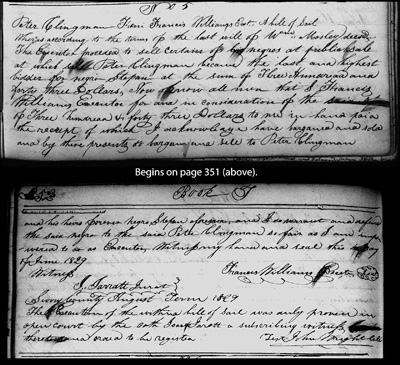 Peter Clingman From Francis Williams Exet. A bill of Sail
Whereas according to the terms of the last will of Wm. Mosley decd.
The Executor proceded to sell certain of his negros at public sale
at which sale Peter Clingman became the last and highest
bidder for negro Stepan at the sum of Three Hundread and
forty three Dollars, Now know all men that I Francis
Williams Executor for and in consideration of the
of Three hundread & forty three Dollars to me in hand paid
the receipt of which I acknowledge have bargand and sold
and by these presents do bargain and sell to Peter Clingman
Begins on page 351 (above).
352 Book
and his heirs forever negro Stepan aforesaid and I do warrant and defend
the said negro to the said Peter Clingman so far as I am
wered to do as Executor, Witness my hand and seal this day
of June 1829
Witness
Francis Williams Exetor
J. Jarratt Jurat
Surry County August Term 1829
The Execution of the within bill of sail was duly proven in
open court by the oath Jarott a subscribing witness
thereto and ordrd to be register
Test John Wright clk